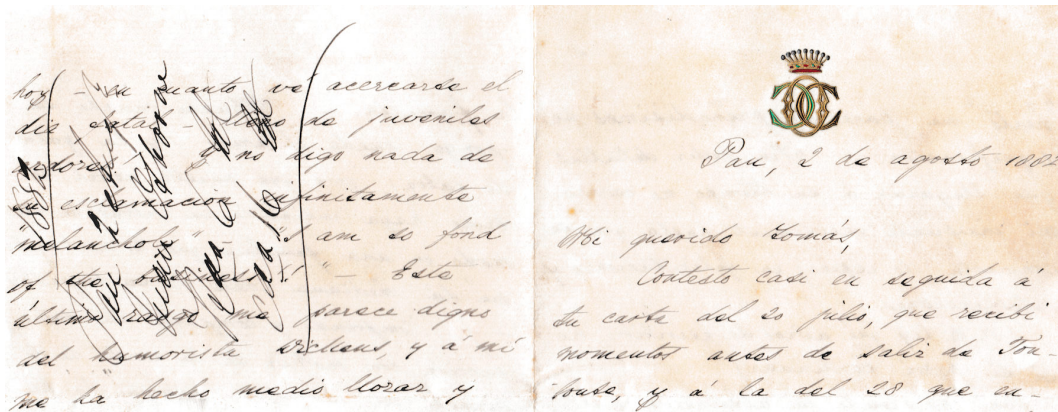 hoy - en cuanto vé acercarse el
dia fatal - lleno de juveniles
ardores. Y no digo nada de
su esclamacion infinitamente
"melancholy" - "I am so fond
of the business!" - Este
último rasgo me parece digno
del humorista Dickens, y á mí
me ha hecho medio llorar y
1882
Pau 2
Rda 6
Cda 16
Pau, 2 de agosto 1882
Mi querido Tomás,
Contesto casi en seguida á
tu carta del 20 julio, que recibí
momentos antes de salir de Tou-
louse, y á la del 28 que en-